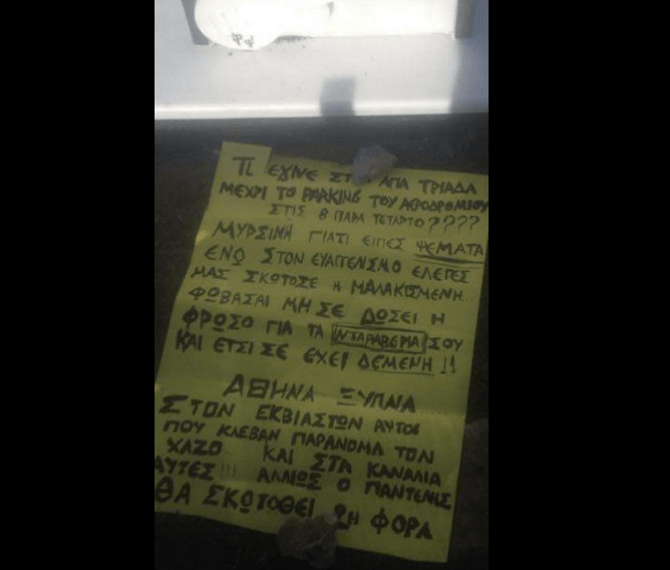 ΤΙ ΕΓΙΝΕ ΣΤΗΝ ΑΓΙΑ ΤΡΙΑΔΑ
ΜΕΧΡΙ ΤΟ PARKING ΤΟΥ ΑΕΡΟΔΡΟΜΙΟΥ
ΣΤΙΣ 8 ΠΑΡΑ ΤΕΤΑΡΤΟ????
ΜΥΡΣΙΝΗ ΓΙΑΤΙ ΕΙΠΕΣ ΨΕΜΑΤΑ
ΕΝΩ ΣΤΟΝ ΕΥΑΓΓΕΛΙΣΜΟ ΕΛΕΓΕΣ
ΜΑΣ ΣΚΟΤΟΣΕ Η ΜΑΛΑΚΙΣΜΕΝΗ
ΦΩΒΑΣΑΙ ΜΗ ΣΕ ΔΩΣΕΙ Η
ΦΡΩΣΟ ΓΙΑ ΤΑ ΝΤΑΡΑΒΕΡΙΑ ΣΟΥ
ΚΑΙ ΕΤΣΙ ΣΕ ΕΧΕΙ ΔΕΜΕΝΗ !!
ΑΘΗΝΑ ΞΥΠΝΑ
ΣΤΟΝ ΕΚΒΙΑΣΤΩΝ ΑΥΤΟΙ
ΠΟΥ ΚΛΕΒΑΝ ΠΑΡΑΝΟΜΑ ΤΟΝ
ΧΑΖΟ ΚΑΙ ΣΤΑ ΚΑΝΑΛΙΑ
ΑΥΤΕΣ!!! ΑΛΛΙΩΣ Ο ΠΑΝΤΕΛΗΣ
ΘΑ ΣΚΩΤΟΘΕΙ 2Η ΦΟΡΑ